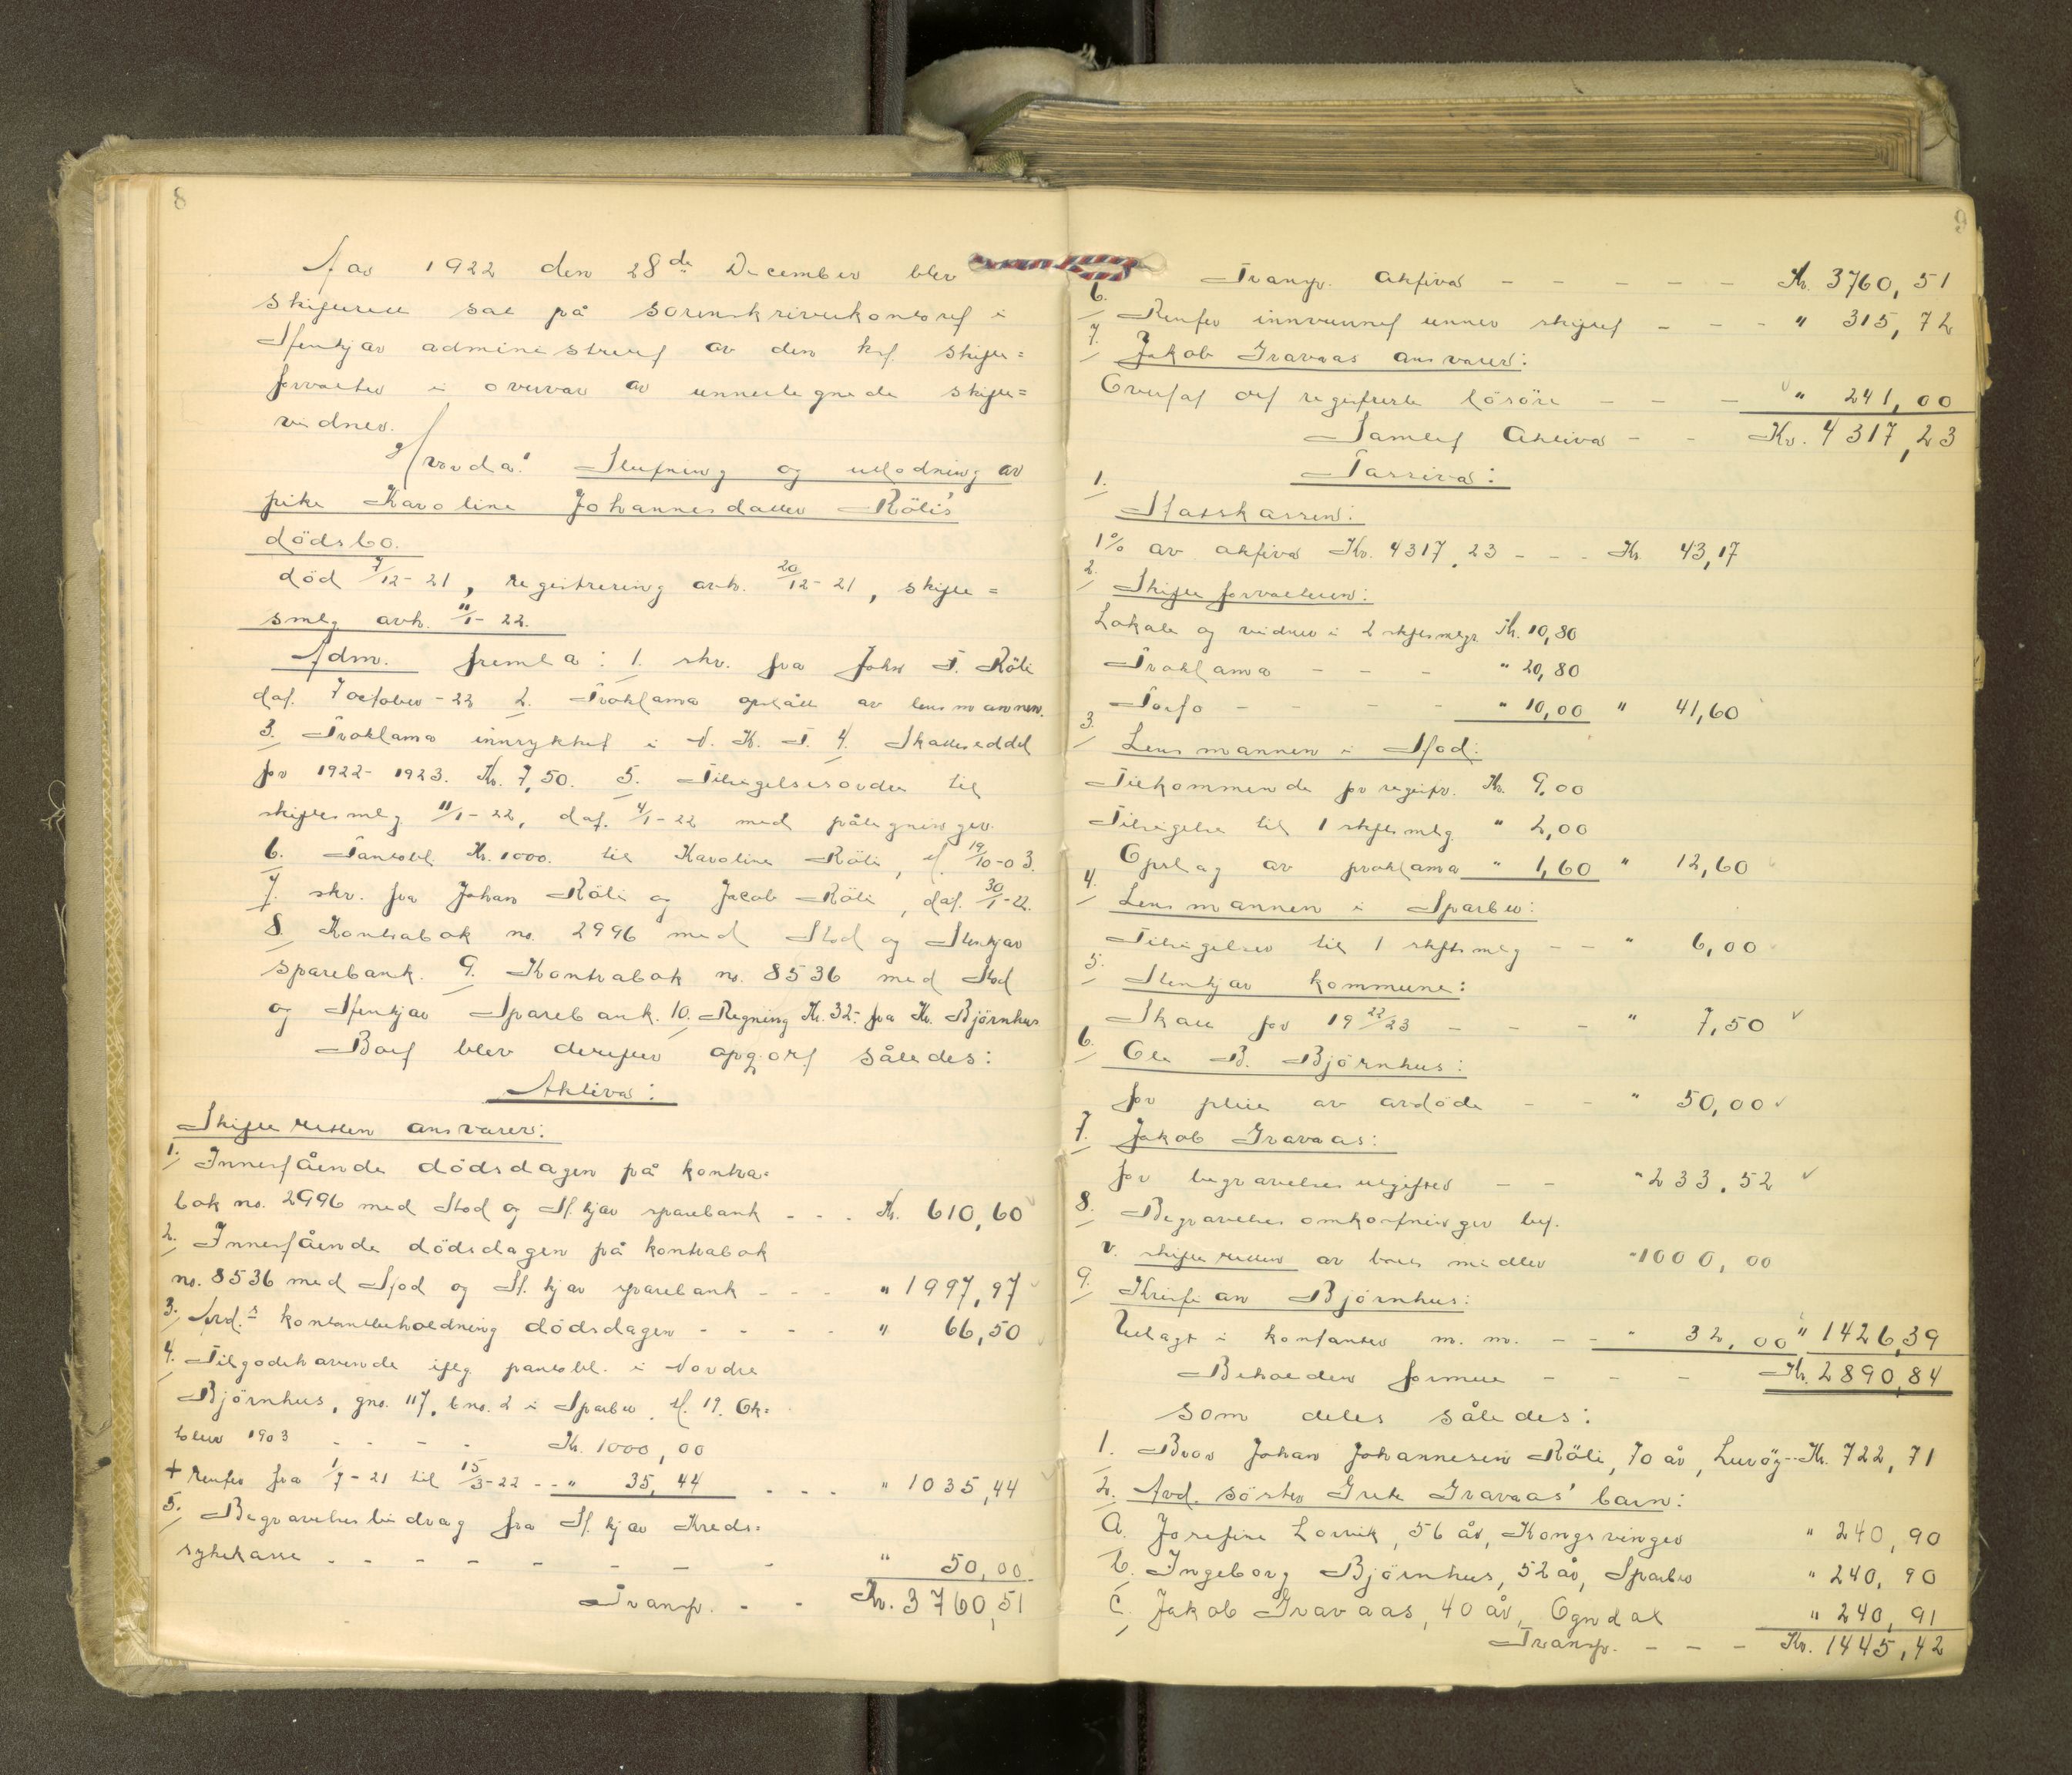 8
Aar 1922 den 28de December blev
skifterett sat på sorenskriverkontoret i
Stenkjær administreret av den kst. skifte=
forvalter i overvær av unnertegnede skifte=
vidner.
Hvorda: Slutning og utlodning av
pike Karoline Johannesdatter Röli's
dödsbo.
död 7/12-21, registrering avh. 20/12-21, skifte=
smlg. avh. 11/1-22.
Adm. fremla: 1. skr. fra John P. Röli
dat. 7 october-22 2. Proklama opslått av lensmannen.
3. Proklama innrykket i N. K. T. 4. Skatteseddel
for 1922-1923. Kr. 7,50. 5. Tilsigelsesordre til
skiftesmlg 11/1-22, dat. 4/1-22 med påtegninger.
6. Panteobl. Kr. 1000. til Karoline Röli, d. 19/10-03.
7. skr. fra Johan Röli og Jacob Röli, dat. 30/1-22.
8. Kontrabok no. 2996 med Stod og Stenkjær
sparebank. 9. Kontrabok no. 8536 med Stod
og Stenkjær Sparebank. 10. Regning Kr. 32.- fra Kr. Björnhus
Boet blev derefter opgjort således:
Aktiva:
Skifteretten ansvarer:
1. Innestående dödsdagen på kontra=
bok no. 2996 med Stod og St.kjær sparebank - - - Kr. 610,60
2. Innestående dödsdagen på kontrabok
no. 8536 med Stod og St.kjær sparebank - - - " 1997,97
3. Avd.s kontantbeholdning dödsdagen - - - - " 66,50
4. Tilgodehavende iflg pantobl. i Nordre
Björnhus, gno. 117, bno. 2 i Sparbu, d. 19. Ok=
tober 1903 - - - - Kr. 1000,00
+ renter fra 1/7-21 til 15/3-22 - - " 35,44 - - - " 1035,44
5. Begravelsesbidrag fra St.kjær Kreds=
sykekasse - - - - - - - - " 50,00
Transp. - - Kr. 3760,51
9
Transp. Aktiva - - - - - Kr. 3760,51
6. Renter innvunnet unner skiftet - - - " 315,72
7. Jakob Gravaas ansvarer:
Overtat det registrerte lösöre - - - " 241,00
Samlet Aktiva - - Kr. 4317,23
Passiva:
1. Statskassen:
1% av aktiva Kr. 4317,23 - - - Kr. 43,17
2. Skifteforvalteren:
Lokale og vidner i 2 skftesmlgr. Kr. 10,80
Proklama - - - " 20,80
Porto - - - - " 10,00 " 41,60
3. Lensmannen i Stod:
Tilkommende for registr. Kr. 9,00
Tilsigelse til 1 skftesmlg. " 2,00
Opslag av proklama " 1,60 " 12,60
4. Lensmannen i Sparbu:
Tilsigelser til 1 skftesmlg - - " 6,00
5. Stenkjær kommune:
Skatt for 1922/23 - - - " 7,50
6. Ole B. Björnhus:
for pleie av avdöde - - " 50,00
7. Jakob Gravaas:
for begravelsesutgifter - - " 233,52
8. Begravelsesomkostninger bet.
v. skifteretten av boets midler " 1000,00
9. Kristian Björnhus:
Utlagt i kontanter m. m. - - " 32,00 " 1426,39
Beholden formue - - - Kr. 2890,84
som deles således:
1. Bror Johan Johannesen Röli, 70 år, Luröy - - Kr. 722,71
2. Avd. söster Grete Gravaas' barn:
a. Josefine Lorvik, 56 år, Kongsvinger " 240,90
b. Ingeborg Björnhus, 52 år, Sparbu " 240,90
c. Jakob Gravaas, 40 år, Ogndal " 240,91
Transp. - - - Kr. 1445,42